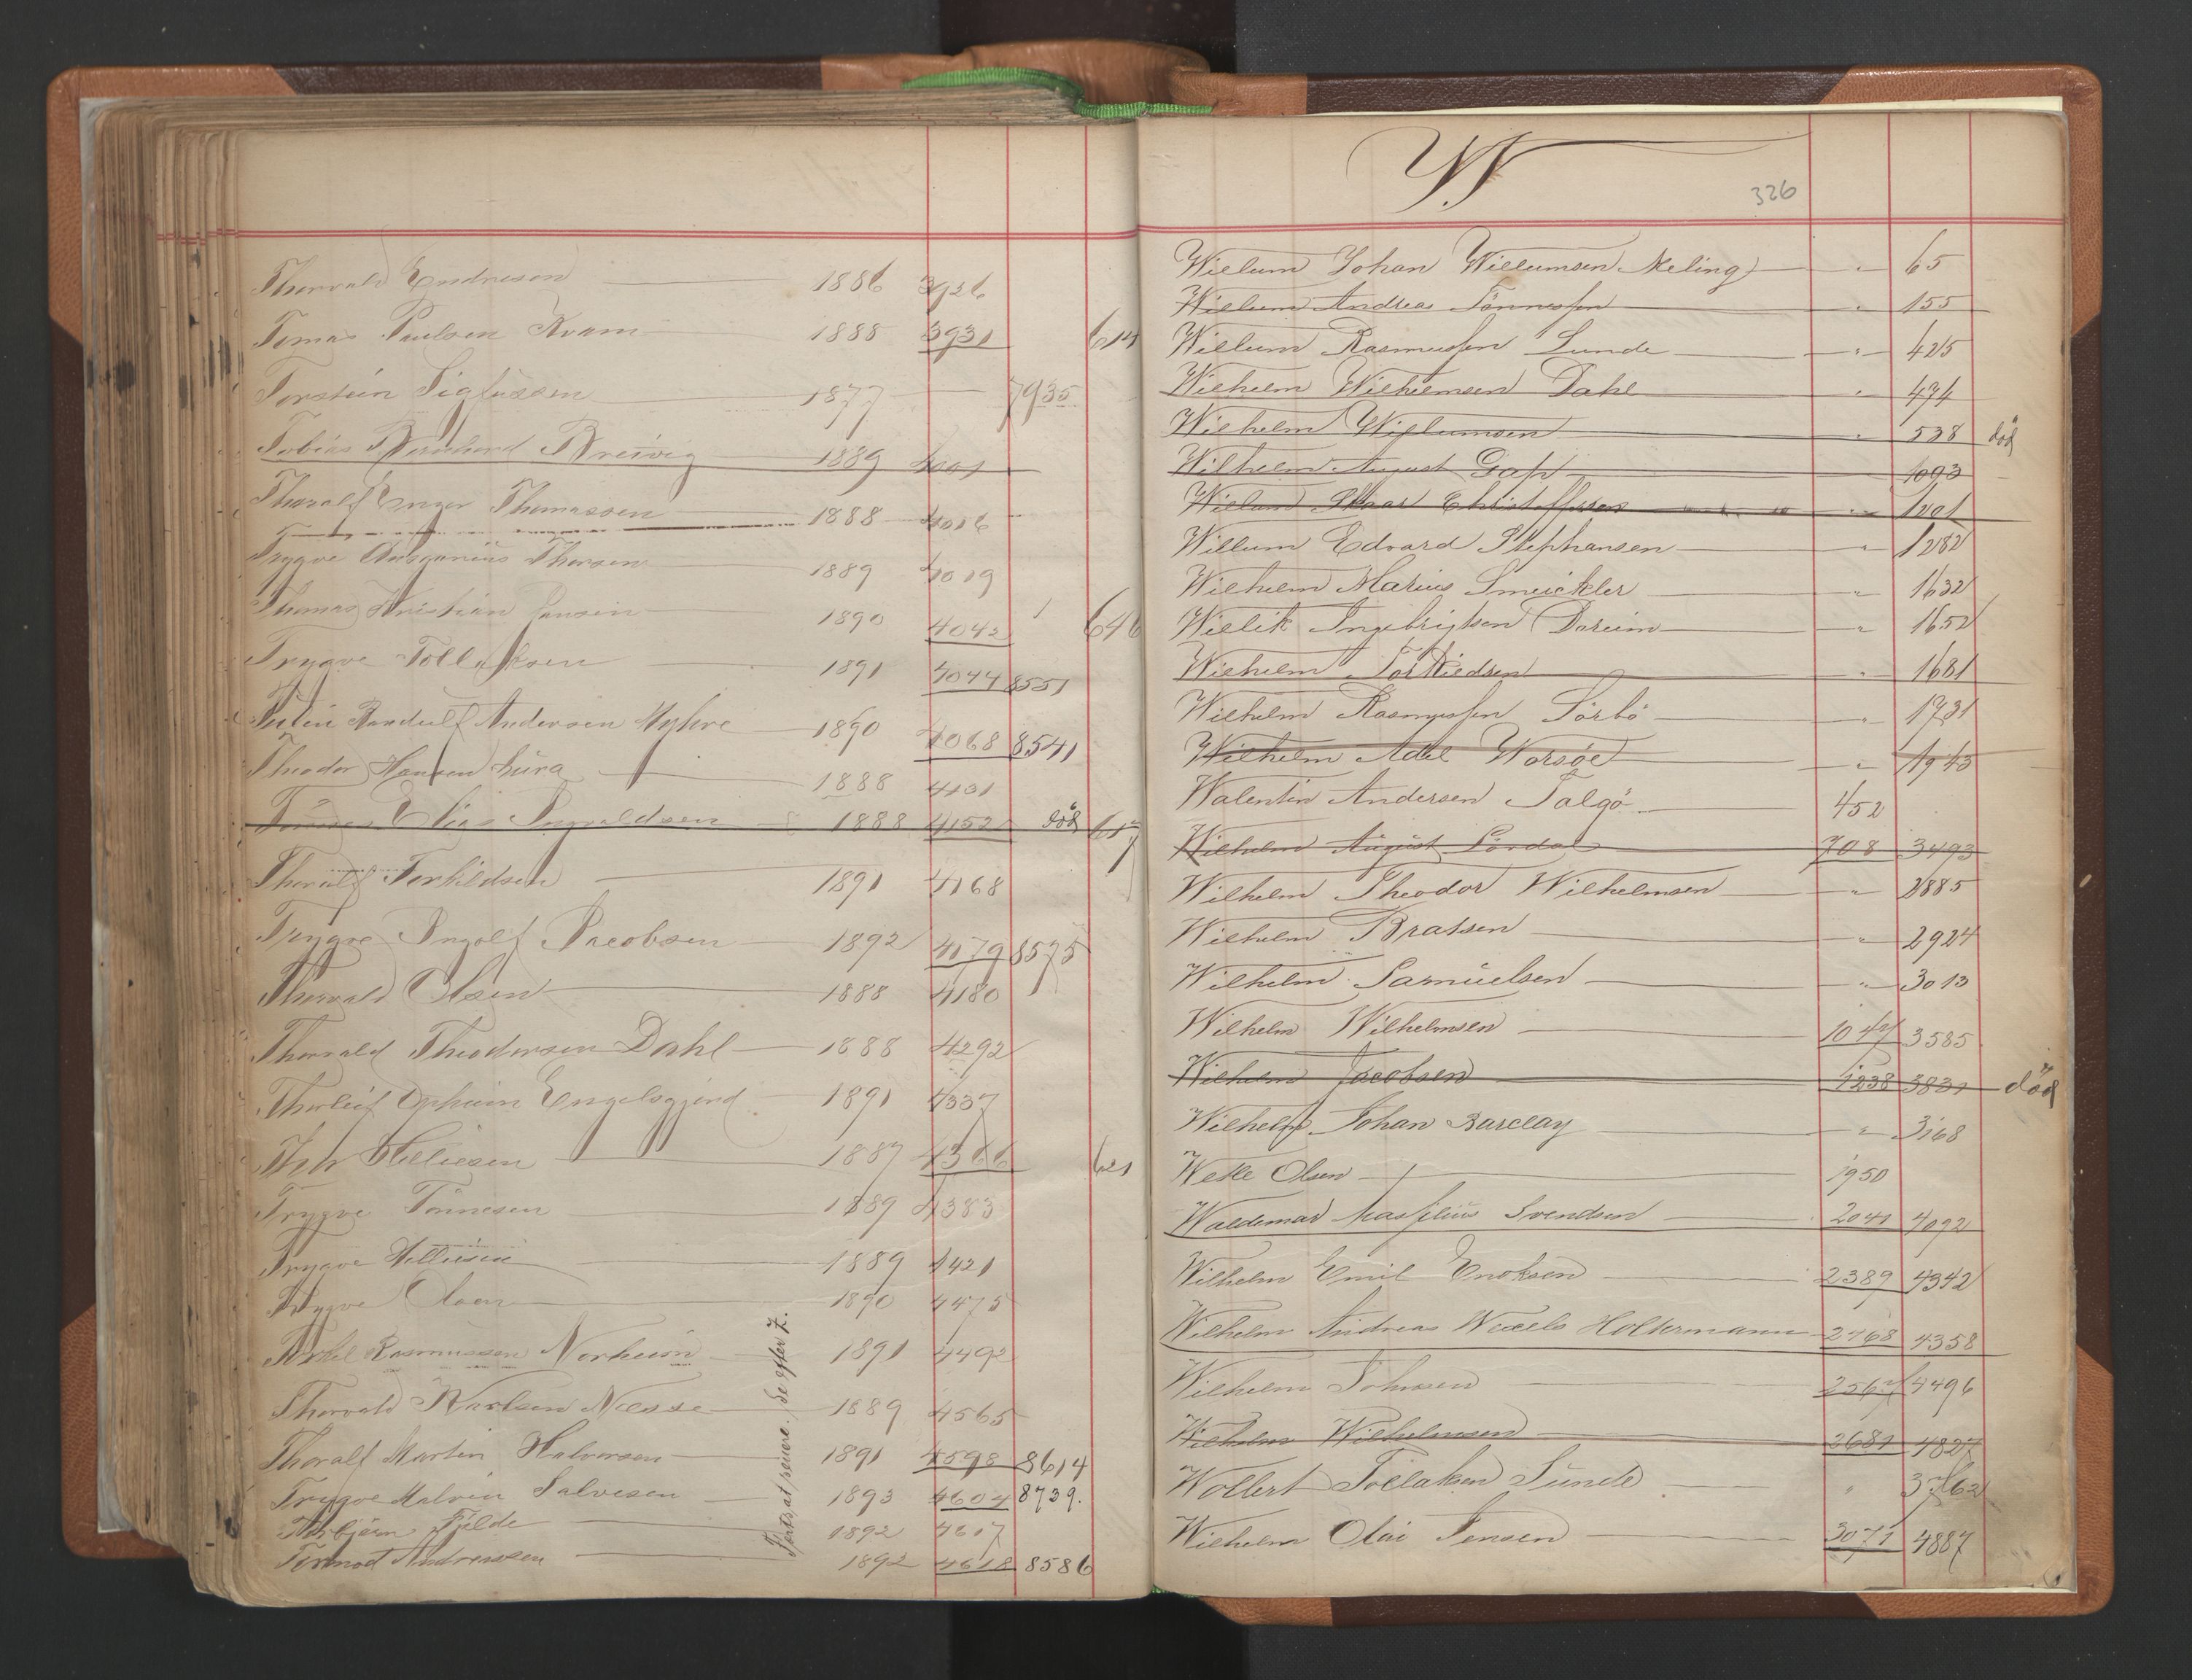 Thorvald Endresen 1886 3926
Tomas Paulsen Kvam 1888 3931 614
Torstein Sigfussen 1877 7935
Tobias Bernhard Breivig 1889 4001
Thoralf Enger Thomassen 1888 4016
Trygve Ansgarius Thorsen 1889 4019
Thomas Kristian Jansen 1890 4042 646
Trygve Tollaksen 1891 4044 8551
Randulf Andersen Myhre 1890 4068 8541
Theodor Hansen Lura 1888 4101
Tønnes Elias Ingvaldsen 1888 4152 död 617
Thoralf Torkildsen 1891 4168
Trygve Ingolf Jacobsen 1892 4179 8575
Thorvald Olsen 1888 4180
Thorvald Theodorsen Dahl 1888 4292
Thorleif Ephraim Engelsgjerd 1891 4337
1887 4366 621
Trygve Tönnesen 1889 4383
Trygve 1889 4421
Trygve Olsen 1890 4475
Torkel Rasmussen Norheim 1891 4492
Thorvald Karlsen Næsse 1889 4565
Thoralf Martin Halvorsen 1891 4598 8614
Trygve Malvin Salvesen 1893 4604 8739.
Thorbjørn Fjelde 1892 4617
Tormod Andreassen 1892 4618 8586
se efter Z.
W.
326
Willum Johan Willumsen Meling " 65
Willum Andreas Tönnessen " 155
Willum Rasmussen Lunde " 425
Wilhelm Wilhelmsen Dahl " 474
Wilhelm Willumsen " 538 död
Wilhelm August 1093
Christoffersen " 1201
Willum Edvard Stephansen " 1282
Wilhelm Marius Smeickler " 1632
Wiellik Ingebrigtsen " 1652
Wilhelm Torkildsen " 1681
Wilhelm Rasmussen Sörbö " 1731
Wilhelm Adel Worsöe " 1943
Walentin Andersen Talgö 452
Wilhelm August 708 3493
Wilhelm Theodor Wilhelmsen " 2885
Wilhelm Bratsen " 2924
Wilhelm Samuelsen " 3013
Wilhelm Wilhelmsen 1047 3585
Wilhelm Jacobsen 1238 3831 död
Wilhelm Johan Barclay " 3168
Olsen 1950
Waldemar Svendsen 2041 4092
Wilhelm Emil Enoksen 2389 4342
Wilhelm Andreas Wexels Holtermann 2468 4358
Wilhelm Johnsen 2567 4496
Wilhelm Wilhelmsen 2681 4827
Wollert Tollaksen Sunde " 3762
Wilhelm Olai Jensen 3071 4887